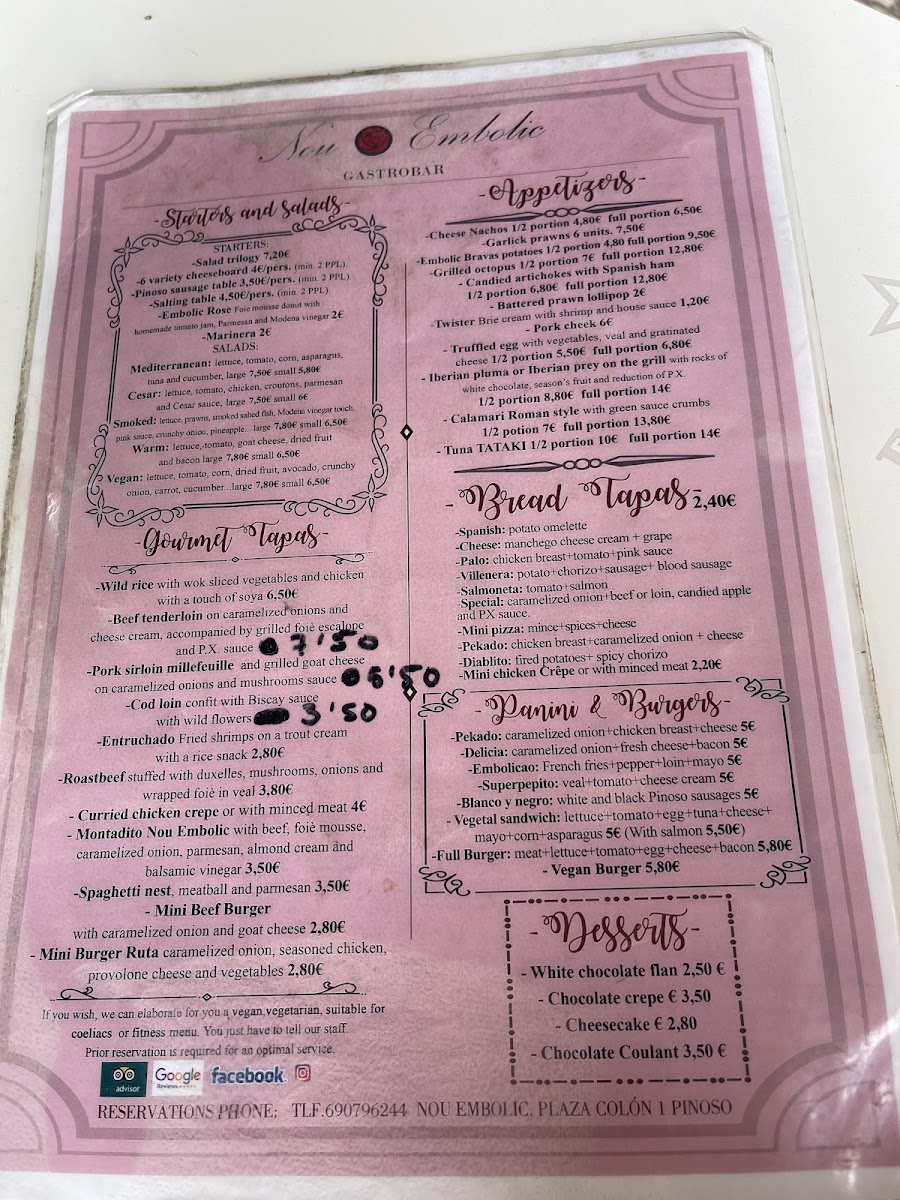 Nou Embolic
GASTROBAR
-Starters and salads-
STARTERS:
-Salad trilogy 7,20€
-6 variety cheeseboard 4€/pers. (min. 2 PPL)
-Pinoso sausage table 3,50€/pers. (min. 2 PPL)
-Salting table 4,50€/pers. (min. 2 PPL)
-Embolic Rose Foie mousse donut with
homemade tomato jam, Parmesan and Modena vinegar 2€
-Marinera 2€
SALADS:
Mediterranean: lettuce, tomato, corn, asparagus,
tuna and cucumber, large 7,50€ small 5,80€
Cesar: lettuce, tomato, chicken, croutons, parmesan
and Cesar sauce, large 7,50€ small 6€
Smoked: lettuce, prawns, smoked salted fish, Modena vinegar touch,
pink sauce, crunchy onion, pineapple... large 7,80€ small 6,50€
Warm: lettuce, tomato, goat cheese, dried fruit
and bacon large 7,80€ small 6,50€
Vegan: lettuce, tomato, corn, dried fruit, avocado, crunchy
onion, carrot, cucumber...large 7,80€ small 6,50€
-Gourmet Tapas-
-Wild rice with wok sliced vegetables and chicken
with a touch of soya 6,50€
-Beef tenderloin on caramelized onions and
cheese cream, accompanied by grilled foiè escalope
and P.X. sauce 7'50
-Pork sirloin millefeuille and grilled goat cheese
on caramelized onions and mushrooms sauce 6'50
-Cod loin confit with Biscay sauce
with wild flowers 3'50
-Entruchado Fried shrimps on a trout cream
with a rice snack 2,80€
-Roastbeef stuffed with duxelles, mushrooms, onions and
wrapped foiè in veal 3,80€
- Curried chicken crepe or with minced meat 4€
- Montadito Nou Embolic with beef, foiè mousse,
caramelized onion, parmesan, almond cream and
balsamic vinegar 3,50€
-Spaghetti nest, meatball and parmesan 3,50€
- Mini Beef Burger
with caramelized onion and goat cheese 2,80€
- Mini Burger Ruta caramelized onion, seasoned chicken,
provolone cheese and vegetables 2,80€
If you wish, we can elaborate for you a vegan,vegetarian, suitable for
coeliacs or fitness menu. You just have to tell our staff.
Prior reservation is required for an optimal service.
-Appetizers-
-Cheese Nachos 1/2 portion 4,80€ full portion 6,50€
-Garlick prawns 6 units. 7,50€
-Embolic Bravas potatoes 1/2 portion 4,80 full portion 9,50€
-Grilled octopus 1/2 portion 7€ full portion 12,80€
- Candied artichokes with Spanish ham
1/2 portion 6,80€ full portion 12,80€
- Battered prawn lollipop 2€
-Twister Brie cream with shrimp and house sauce 1,20€
- Pork cheek 6€
- Truffled egg with vegetables, veal and gratinated
cheese 1/2 portion 5,50€ full portion 6,80€
- Iberian pluma or Iberian prey on the grill with rocks of
white chocolate, season's fruit and reduction of P.X.
1/2 portion 8,80€ full portion 14€
- Calamari Roman style with green sauce crumbs
1/2 potion 7€ full portion 13,80€
- Tuna TATAKI 1/2 portion 10€ full portion 14€
-Bread Tapas- 2,40€
-Spanish: potato omelette
-Cheese: manchego cheese cream + grape
-Palo: chicken breast+tomato+pink sauce
-Villenera: potato+chorizo+sausage+ blood sausage
-Salmoneta: tomato+salmon
-Special: caramelized onion+beef or loin, candied apple
and PX sauce.
-Mini pizza: mince+spices+cheese
-Pekado: chicken breast+caramelized onion + cheese
-Diablito: fired potatoes+ spicy chorizo
-Mini chicken Crêpe or with minced meat 2,20€
-Panini & Burgers-
-Pekado: caramelized onion+chicken breast+cheese 5€
-Delicia: caramelized onion+fresh cheese+bacon 5€
-Embolicao: French fries+pepper+loin+mayo 5€
-Superpepito: veal+tomato+cheese cream 5€
-Blanco y negro: white and black Pinoso sausages 5€
- Vegetal sandwich: lettuce+tomato+egg+tuna+cheese+
mayo+corn+asparagus 5€ (With salmon 5,50€)
-Full Burger: meat+lettuce+tomato+egg+cheese+bacon 5,80€
- Vegan Burger 5,80€
-Desserts-
- White chocolate flan 2,50 €
- Chocolate crepe € 3,50
- Cheesecake € 2,80
- Chocolate Coulant 3,50 €
advisor Google Reviews facebook
RESERVATIONS PHONE: TLF.690796244 NOU EMBOLIC. PLAZA COLÓN 1 PINOSO